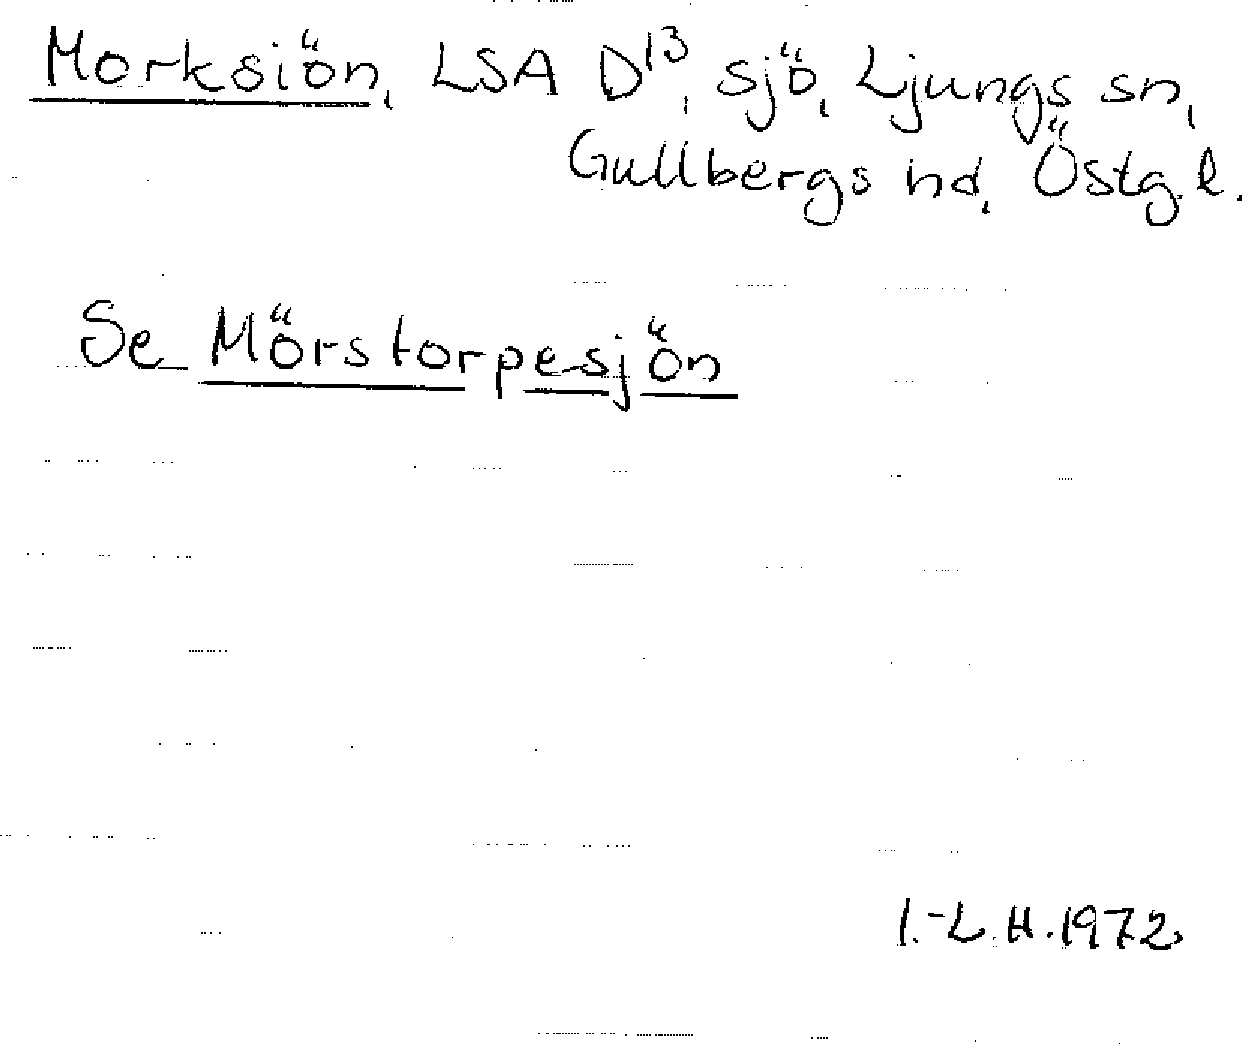 Morksiön, LSA D13, sjö, Ljungs sn,
Gullbergs hd, Östg.l.
Se Mörstorpesjön
I.-L.H.1972